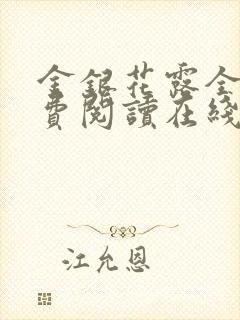 金銀花露全
費閱讀在綫
江允恩